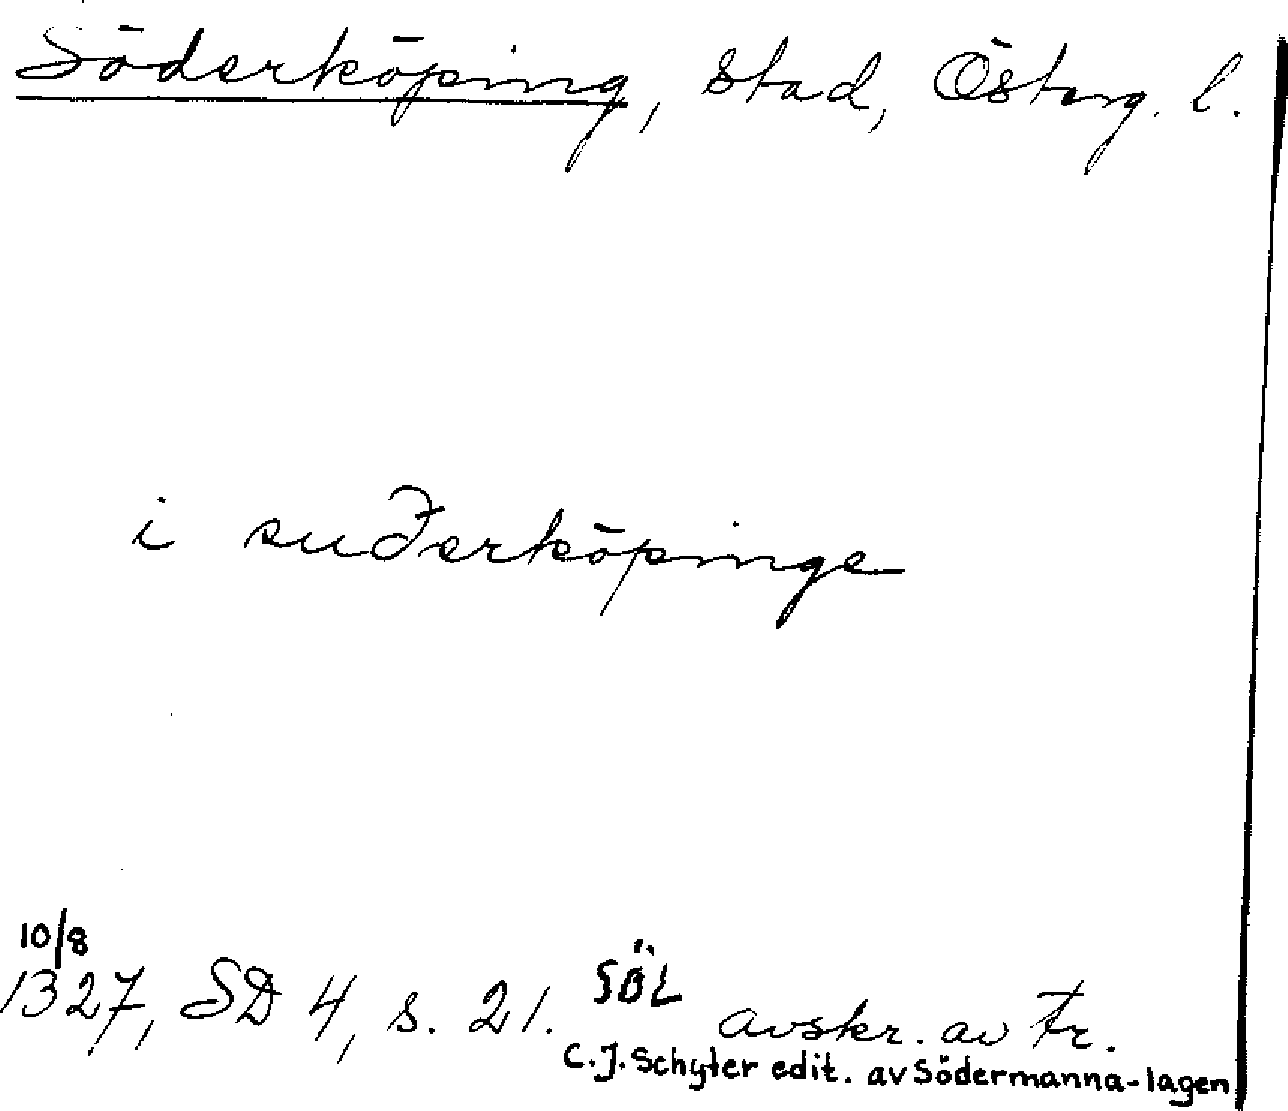 Söderköping, stad, Österg. l.
i suðerköpinge
10/8
1327, SD 4, s. 21. SÖL avskr. av tr.
C.J. Schyter edit. av Södermanna-lagen